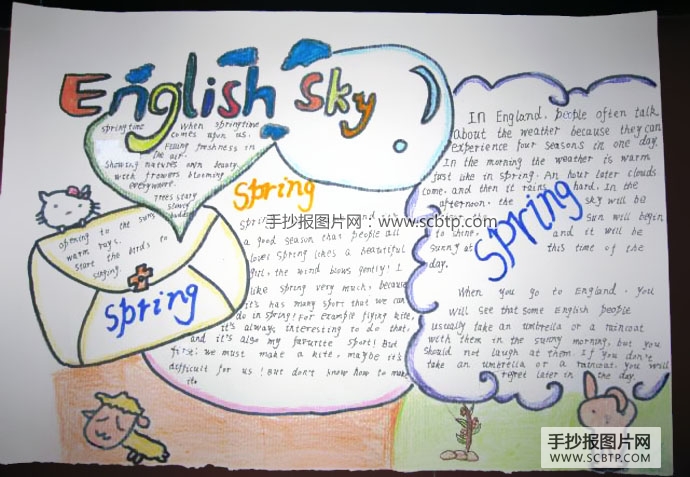 English Sky
springtime When springtime
comes upon us.
Filling freshness in
the air.
Showing natures own beauty
with frowers blooming
everyware.
Trees stary
slowly
budding
opening to the suns
warm rays.
Start the birds to
singing.
spring
Spring
手抄报图片网:www.scbtp.com
a good season that people all
lover Spring likes a beautiful
girl, the wind blows gently! I
like spring very much, because
it's has many sport that we can
do in spring! For example flying kite,
it's always interesting to do that,
and it's also my favourite sport! But
first, we must make a kite, maybe it's
difficult for us! But don't know how to make
it.
In England, people often talk
about the weather because they can
experience four seasons in one day.
In the morning the weather is warm
just like in spring. An hour later clouds
come. and then it rains hard. In the
afternoon. the sky will be
sun will begin
to shine. and it will be
sunny at this time of the
day.
Spring
When you go to England. you
will see that some English people
usually take an umbrella or a raincoat
with them in the sunny morning, but you
should not laugh at them. If you don't
take an umbrella or a raincoat. you will
regret later in the day.
手抄报图片网
WWW.SCBTP.COM